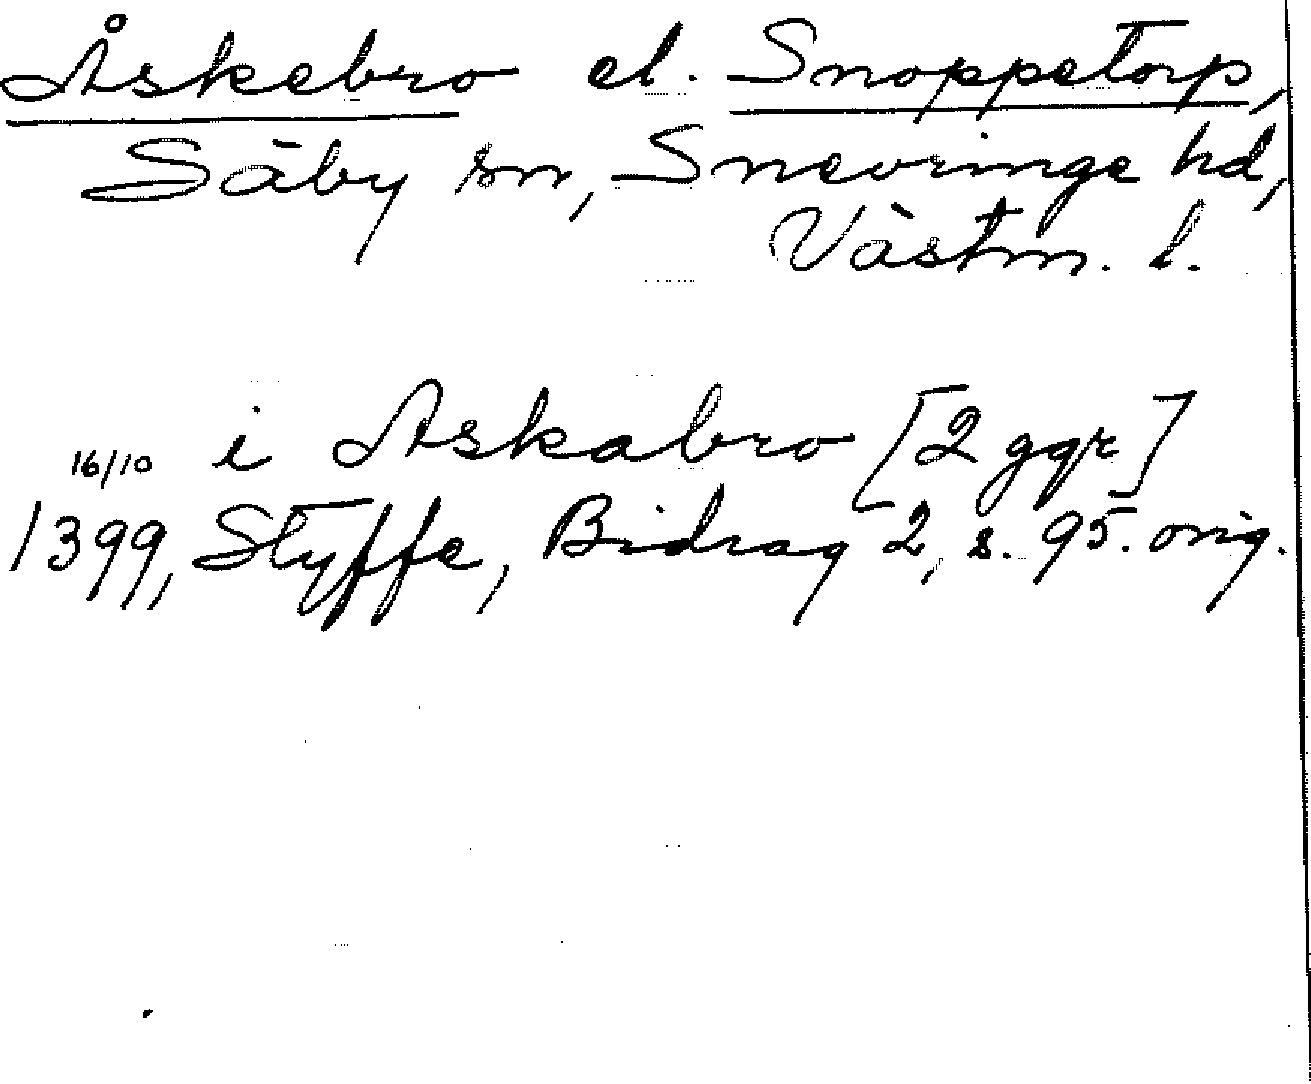 Åskebro el. Snoppetorp,
Säby sn, Snevringe hd,
Västm. l.
16/10 i Askabro [2 ggr]
1399, Styffe, Bidrag 2, s. 95. orig.